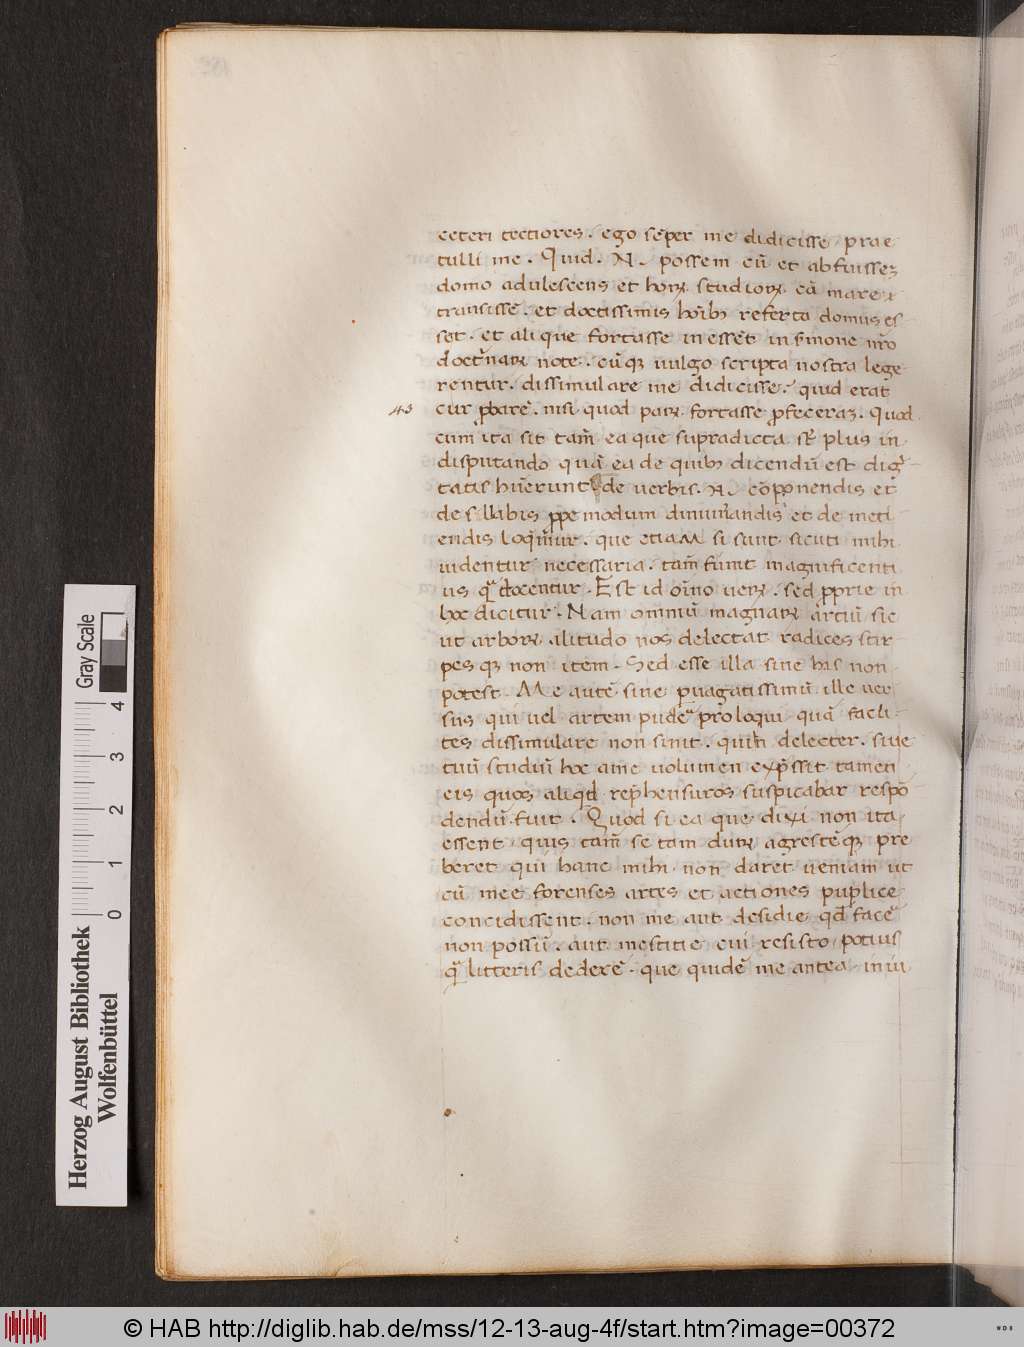 ceteri tectiores. ego sēper me didicisse prae
tulli me. Quid. N. possem cū et abfuissez
domo adulescens et horꝝ studiorꝝ cā mare
transissē. et doctissimis hoīb; referta domus es
set. et alique fortasse inessēt in s̄mone nr̄o
doct̄narꝝ note. cūqꝫ uulgo scripta nostra lege
rentur. dissimulare me didicisse. quid erat
43
cur ꝓbarē. nisi quod parꝝ fortasse ꝓfeceraꝫ. Quod
cum ita sit tam̄ ea que supradicta st̄ plus in
disputando quā ea de quib; dicendū est dig̅
tatis hūerunt de uerbis. N. cōpponendis et
de sillabis ꝓpemodum dinum̄andis et de meti
endis loq̄mur. que etiaM si sunt sicuti mihi
uidentur necessaria. tam̄ fiunt magnificenti
us q̄ docentur. Est id oīno uerꝝ. sed ꝓprie in
hoc dicitur. Nam omniū magnarꝝ artiū sic
ut arborꝝ altitudo nos delectat radices stir
pesqꝫ non item. Sed esse illa sine his non
potest. Me autē siue ꝑuagatissimū ille uer
sus qui uel artem pudē ꝓloqui quā facti
tes dissimulare non sinit. quin delecter. siue
tuū studiū hoc ame uolumen exp̄ssit tamen
eis quos aliqd rep̄hensuros suspicabar respō
dendū fuit. Quod si ea que dixi non ita
essent quis tam̄ se tam durꝝ agrestēqꝫ pre
beret qui hanc mihi non daret ueniam ut
cū mee forenses artes et actiones puplice
concidissent. non me aut desidie qd facē
non possū. aut mestitie cui resisto potius
q̄ litteris dederē. que quidē me antea in iu
Herzog August Bibliothek
Wolfenbüttel
Gray Scale
0 1 2 3 4
© HAB http://diglib.hab.de/mss/12-13-aug-4f/start.htm?image=00372